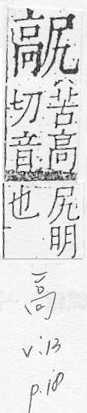 髛
苦高
切音
尻明
也
高
v.13
p.18